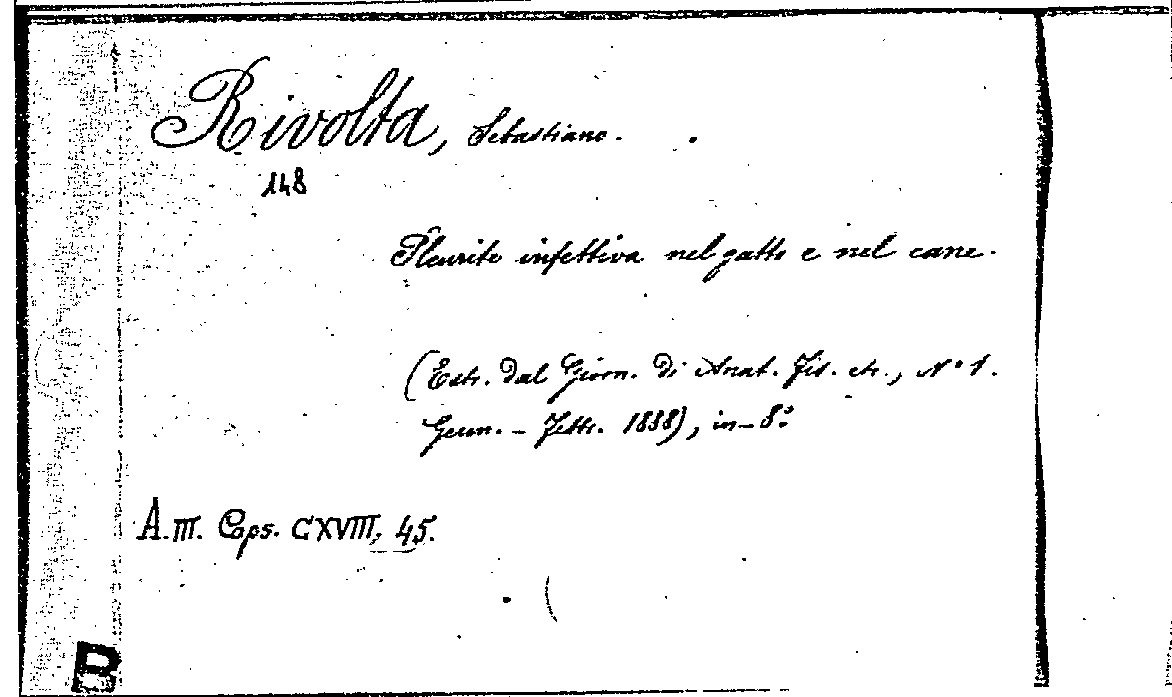 Rivolta, Sebastiano.
148
Pleurite infettiva nel gatto e nel cane.
(Estr. dal Giorn. di Anat. Fis. etc., N° 1.
Genn. - Febbr. 1888), in-8°.
A. III. Caps. CXVIII, 45.
B